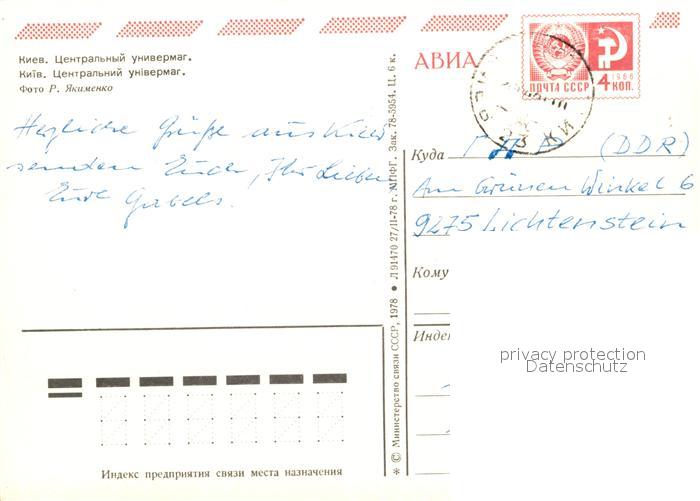 Киев. Центральный универмаг.
Київ. Центральний універмаг.
Фото Р. Якименко
Herzliche Grüße aus Kiew
senden Euch, Ihr Lieben
Eure Gabels.
* © Министерство связи СССР, 1978 ● Л 91470 27/II-78 г. МПФГ. Зак. 78-5954. Ц. 6 к.
Индекс предприятия связи места назначения
АВИА
ПОЧТА СССР
1966
4 КОП.
Куда ГДР (DDR)
Am Grünen Winkel 6
9275 Lichtenstein
Кому
Индек
privacy protection
Datenschutz